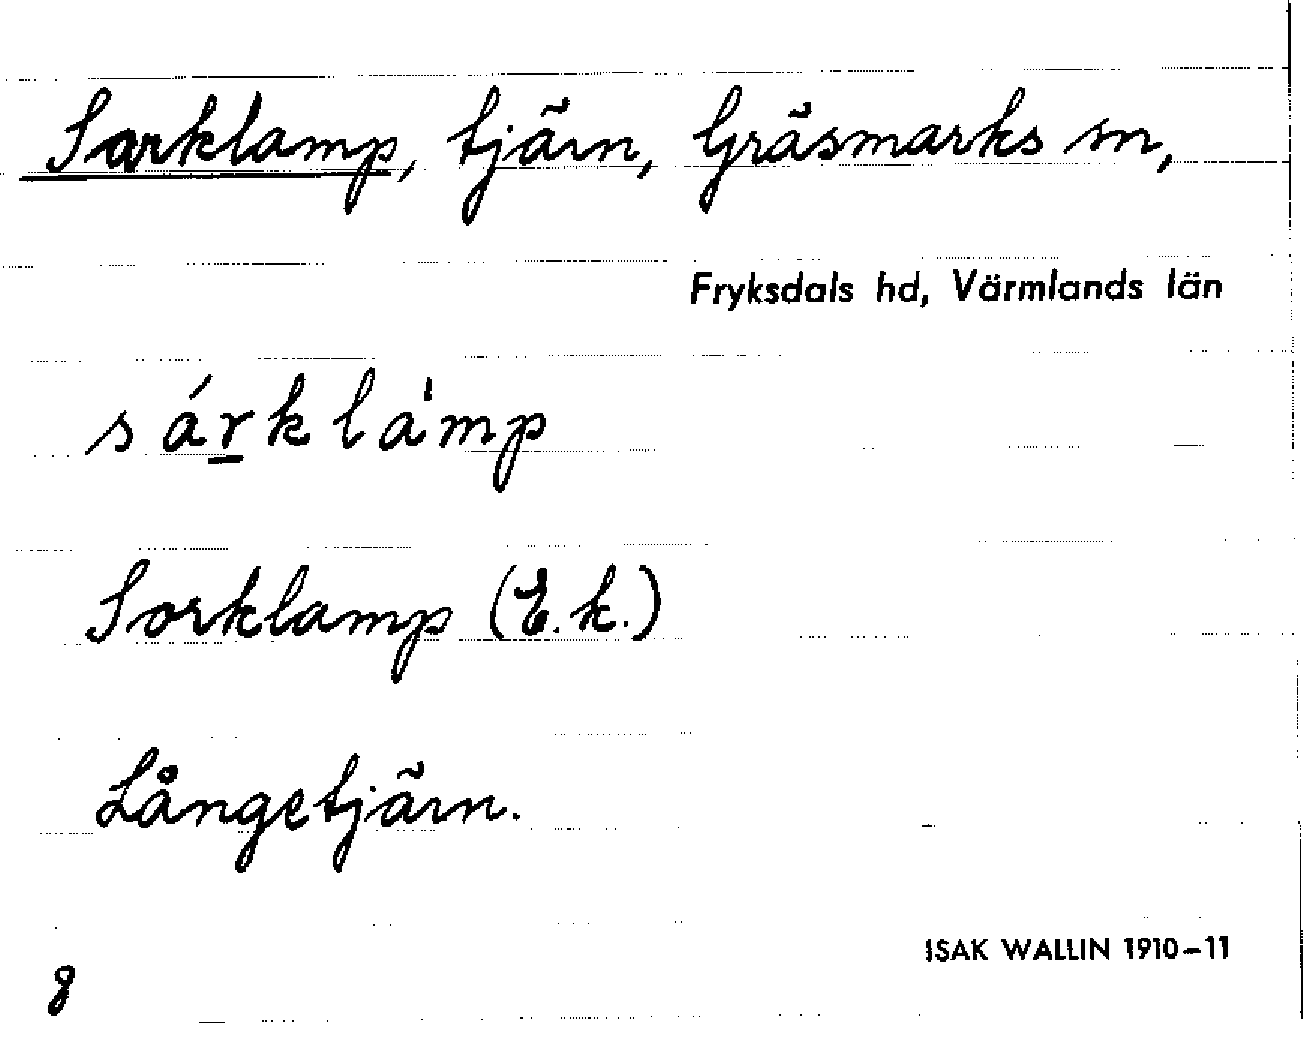 Sarklamp, tjärn, Gräsmarks sn,
Fryksdals hd, Värmlands län
sárklam̍p
Sorklamp (E.k.)
Långetjärn.
ISAK WALLIN 1910–11
8